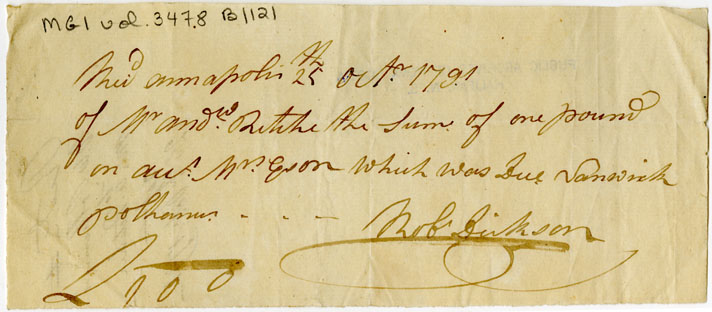 MG1 vol. 3478 B/121
Recd annapolis 25th Octr 1791
of Mr andrw Ritchie the Sum of one pound
on acct Mrs Eson which was Due Lanwick
polhamus - - -
Robt Dickson
£ 1 0 0